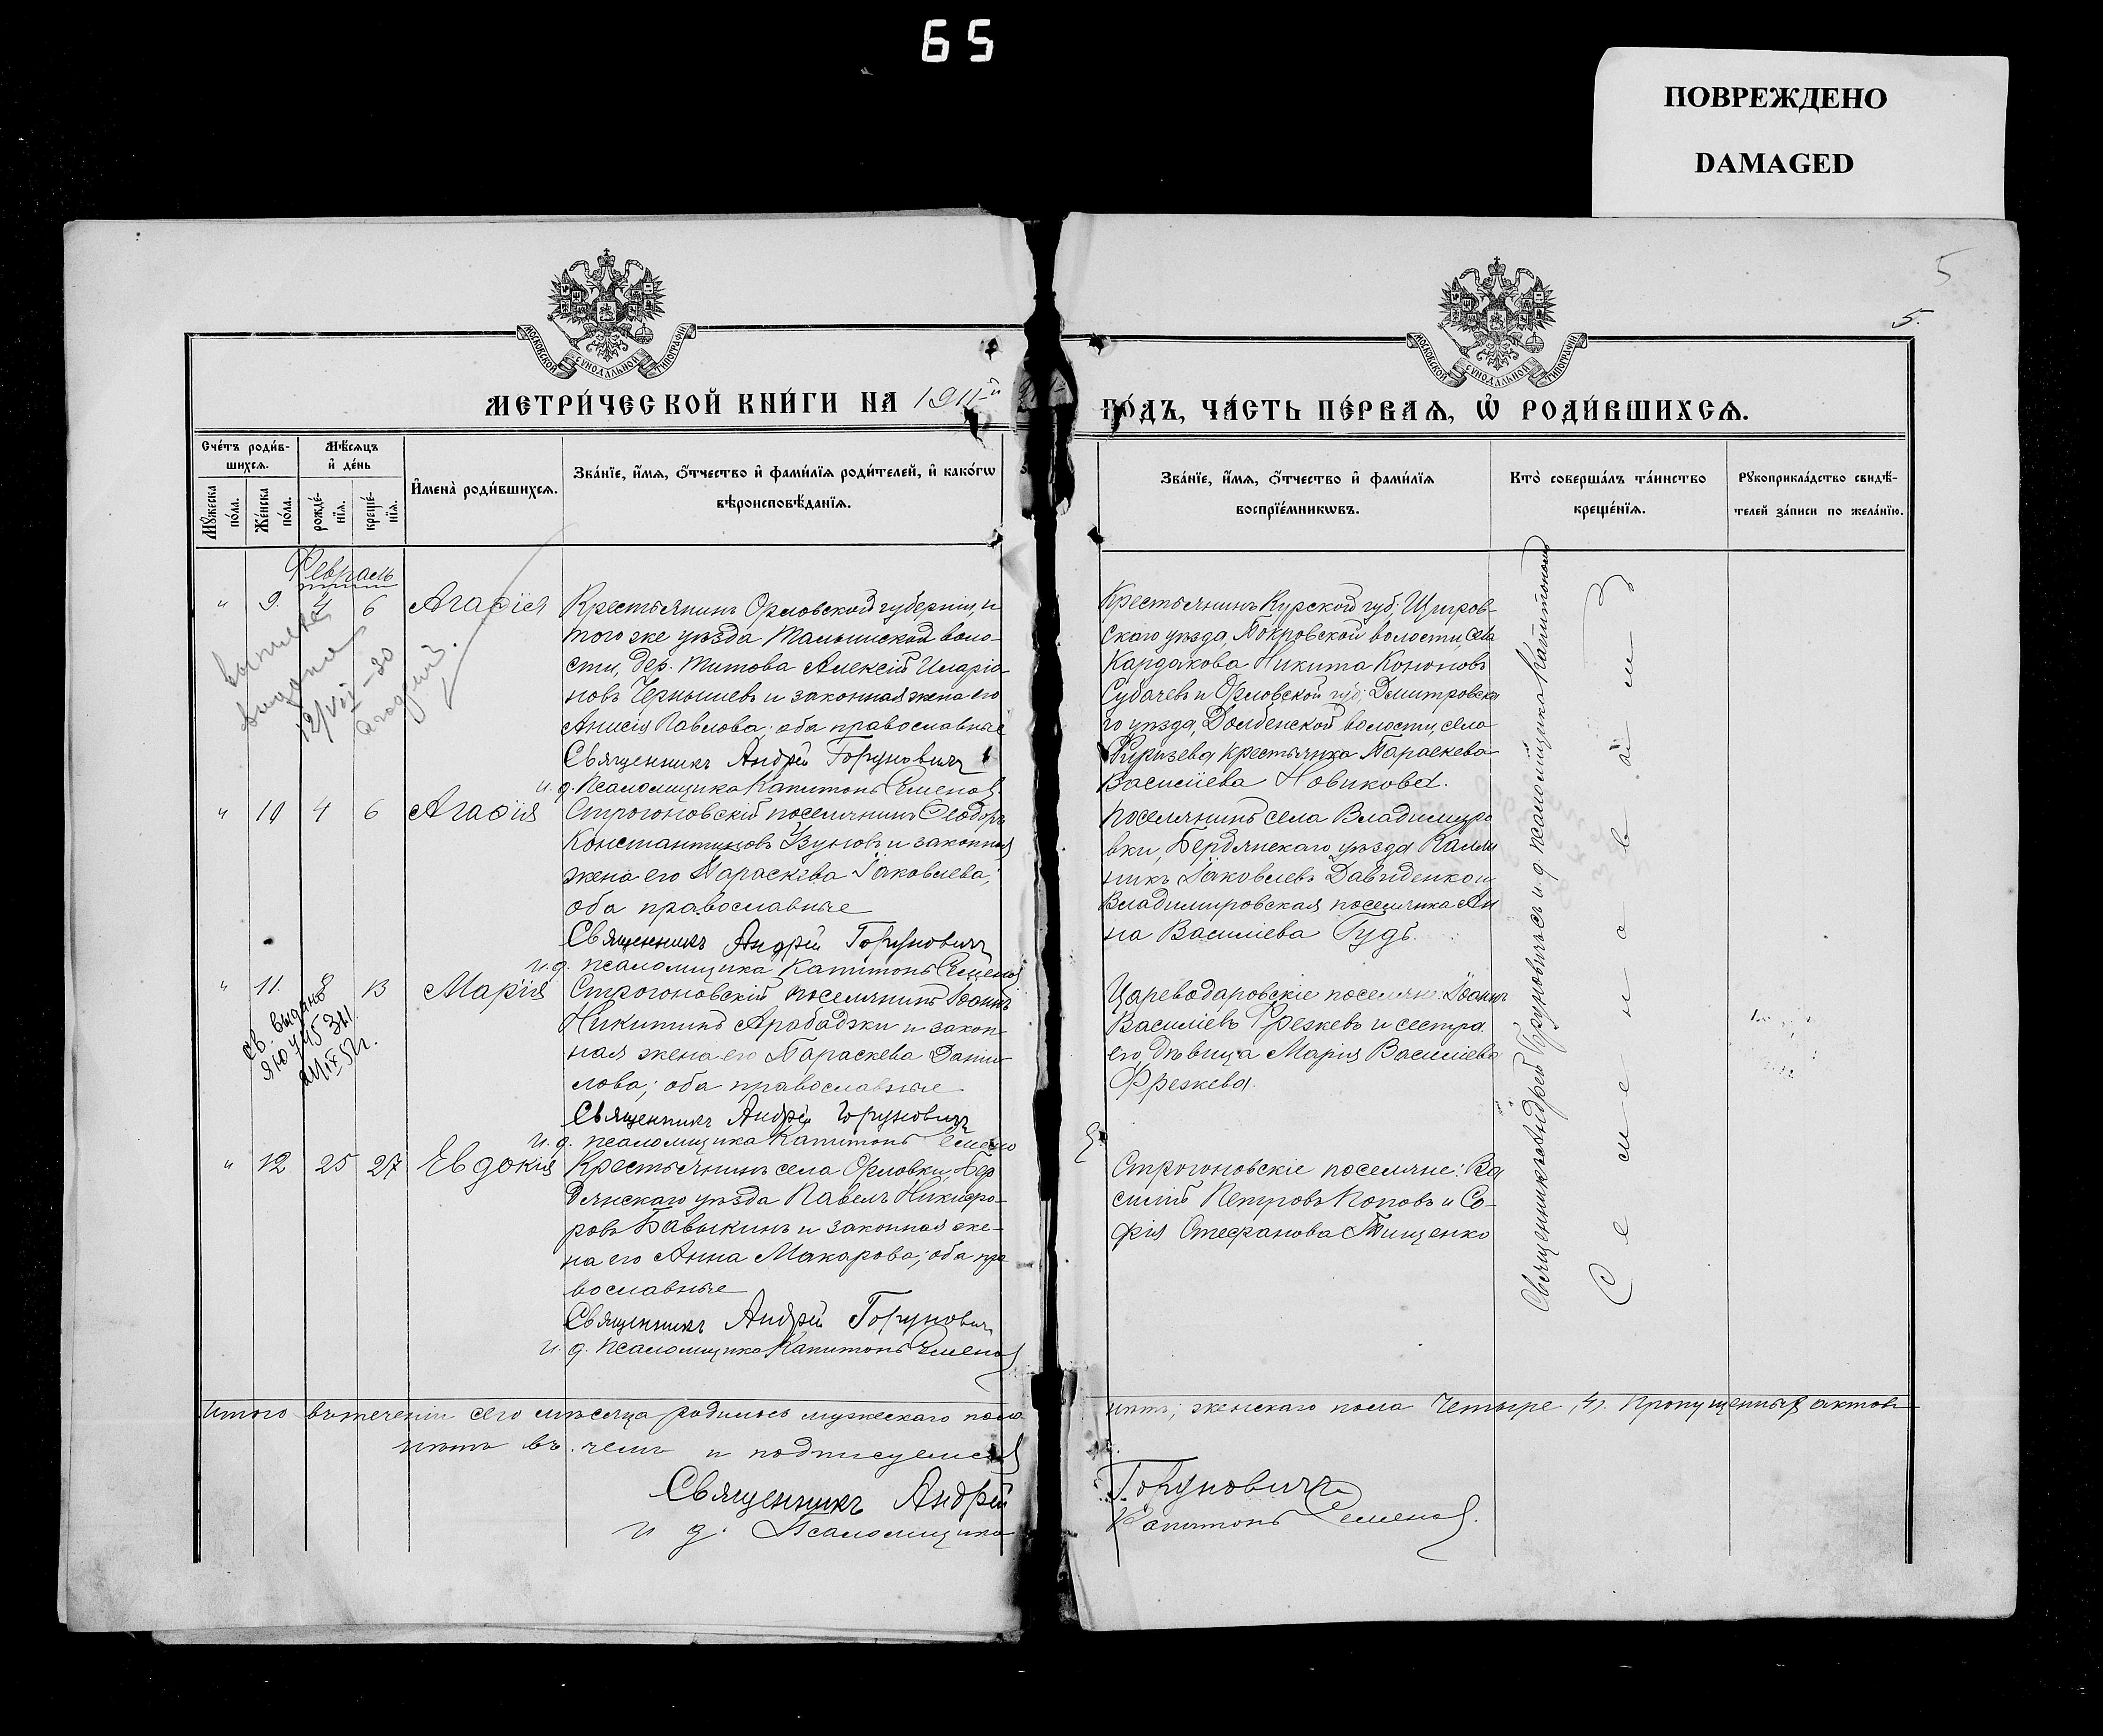 65
ПОВРЕЖДЕНО
DAMAGED
5
5.
МОСКОВСКОЙ СУНОДАЛЬНОЙ ТИПОГРАФІИ
МОСКОВСКОЙ СУНОДАЛЬНОЙ ТИПОГРАФІИ
МЕТРИ́ЧЕСКОЙ КНИ́ГИ НА 1911-й
ГО́ДЪ, ЧА́СТЬ ПЕ́РВАѦ, Ѡ҆ РОДИ́ВШИХСѦ.
Сче́тъ роди́в-
шихсѧ.
Мꙋ́жеска по́ла.
Же́нска по́ла.
Мѣ́сѧцъ
и҆ де́нь
рожде́-
нїѧ.
креще́-
нїѧ.
И҆мена̀ роди́вшихсѧ.
Зва́нїе, и҆́мѧ, ѻ҆́тчество и҆ фами́лїѧ роди́телей, и҆ како́гѡ
вѣроисповѣ́данїѧ.
Зва́нїе, и҆́мѧ, ѻ҆́тчество и҆ фами́лїѧ
воспрїе́мникѡвъ.
Кто̀ соверша́лъ та́инство
креще́нїѧ.
Рꙋкоприкла́дство свидѣ́-
телей за́писи по жела́нїю.
Февраль
" 9. 4 6 Агаѳія
Крестьянинъ Орловской губерніи, и
того же уѣзда Тамьинской воло-
сти, дер. Титова Алексій Иларіо-
новъ Чернышевъ и законная жена его
Анисія Павлова; оба православные
Священникъ Андрей Горуновичъ
и. д. Псаломщика Капитонъ Семеновъ
Крестьянинъ Курской губ; Щигров-
скаго уѣзда, Покровской волости, села
Кардакова Никита Кононовъ
Субачевъ и Орловской губ; Дмитровска
го уѣзда, Долбенской волости, села
крестьянка Параскева
Василіева Новикова.
выписка
выдана
12/VII-30
" 10 4 6 Агаѳія
Строгоновскій поселянинъ Ѳеодоръ
Константиновъ Узуновъ и законная
жена его Параскева Іаковлева;
оба православные
Священникъ Андрей Горуновичъ
и. д. псаломщика Капитонъ Семеновъ
Поселянинъ села Владимиро
вки, Бердянскаго уѣзда Калли
никъ Іаковлевъ Давиденко и
Владимировская поселянка Ан
на Василіева Гудь.
" 11. 8 13 Марія
Строгоновскій поселянинъ Іоаннъ
Никитинъ Арабаджи и закон-
ная жена его Параскева Дани-
лова; оба православные
Священникъ Андрей Горуновичъ
и. д. псаломщика Капитонъ Семено
Цареводаровскіе поселяне: Іоаннъ
Василіевъ Фрезкевъ и сестра
его, дѣвица Марія Василіева
Фрезкева.
св. выдано
ЯЮ 445341
IX 52г.
" 12 25 27 Евдокія
Крестьянинъ села Орловки, Бер
дянскаго уѣзда Павелъ Никифо-
ровъ Бавыкинъ и законная же-
на его Анна Макарова; оба пра
вославные
Священникъ Андрей Горунович
и. д. Псаломщика Капитонъ Семеновъ
Строгоновскіе поселяне: Ва
силій Петровъ Поповъ и Со-
фія Стефанова Тищенко
Священникъ Андрей Горуновичъ съ и. д. псаломщика Капитономъ
Семеновымъ
Итого въ теченіи сего мѣсяца родилось мужескаго пола
нѣтъ, женскаго пола Четыре, 4. Пропущенныхъ актовъ
нѣтъ въ чемъ и подписуемся
Священникъ Андрей Горуновичъ
и д. Псаломщика Капитонъ Семеновъ.